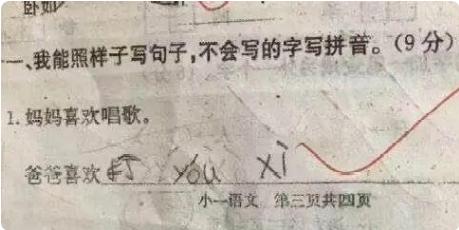 一、我能照样子写句子,不会写的字写拼音。(9 分)
1. 妈妈喜欢唱歌。
爸爸喜欢打 you xi
小一语文 第三页共四页